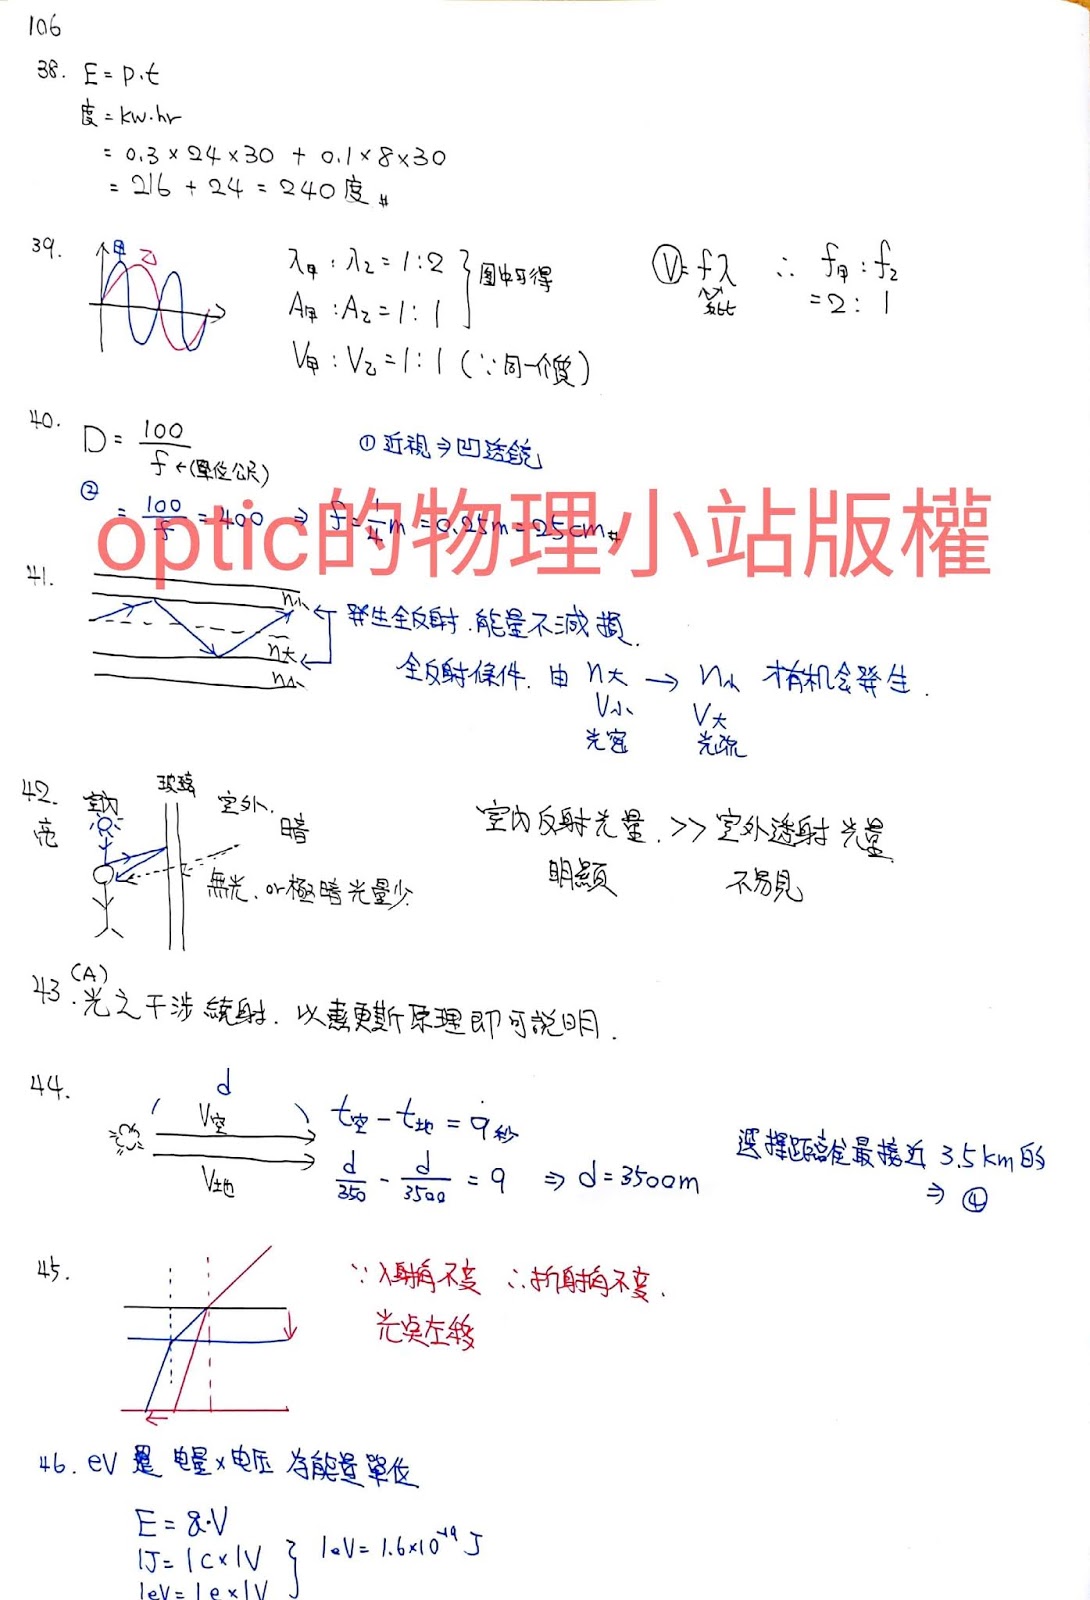 106
38. E = P.t
度 = kw.hr
= 0.3 × 24 × 30 + 0.1 × 8 × 30
= 216 + 24 = 240 度 #
39. 甲 乙
λ甲 : λ乙 = 1 : 2
A甲 : A乙 = 1 : 1
圖中可得
V甲 : V乙 = 1 : 1 (∵同一介質)
V = fλ ∴ f甲 : f乙
反比 = 2 : 1
40. D = 100/f ←(單位公尺)
① 近視 ⇒ 凹透鏡
② = 100/f = 400 ⇒ f = 1/4 m = 0.25m = 25cm #
optic的物理小站版權
41. n小
n大
n小
發生全反射.能量不減損.
全反射條件. 由 n大 → n小 才有机会發生.
V小 V大
光密 光疏
42. 室內 玻璃 室外.
亮 暗
無光. or極暗光量少
室內反射光量. >> 室外透射光量
明顯 不易見
43. (A)
光之干涉繞射. 以惠更斯原理即可說明.
44. d
V空
V地
t空 - t地 = 9秒
d/350 - d/3500 = 9 ⇒ d = 3500m
選擇距離最接近 3.5km的
⇒ ④
45. ∵入射角不变 ∴折射角不变.
光点左移
46. eV 是 电量×电压 为能量單位
E = q.V
1J = 1C×1V
1eV = 1e×1V
1eV = 1.6×10⁻¹⁹ J